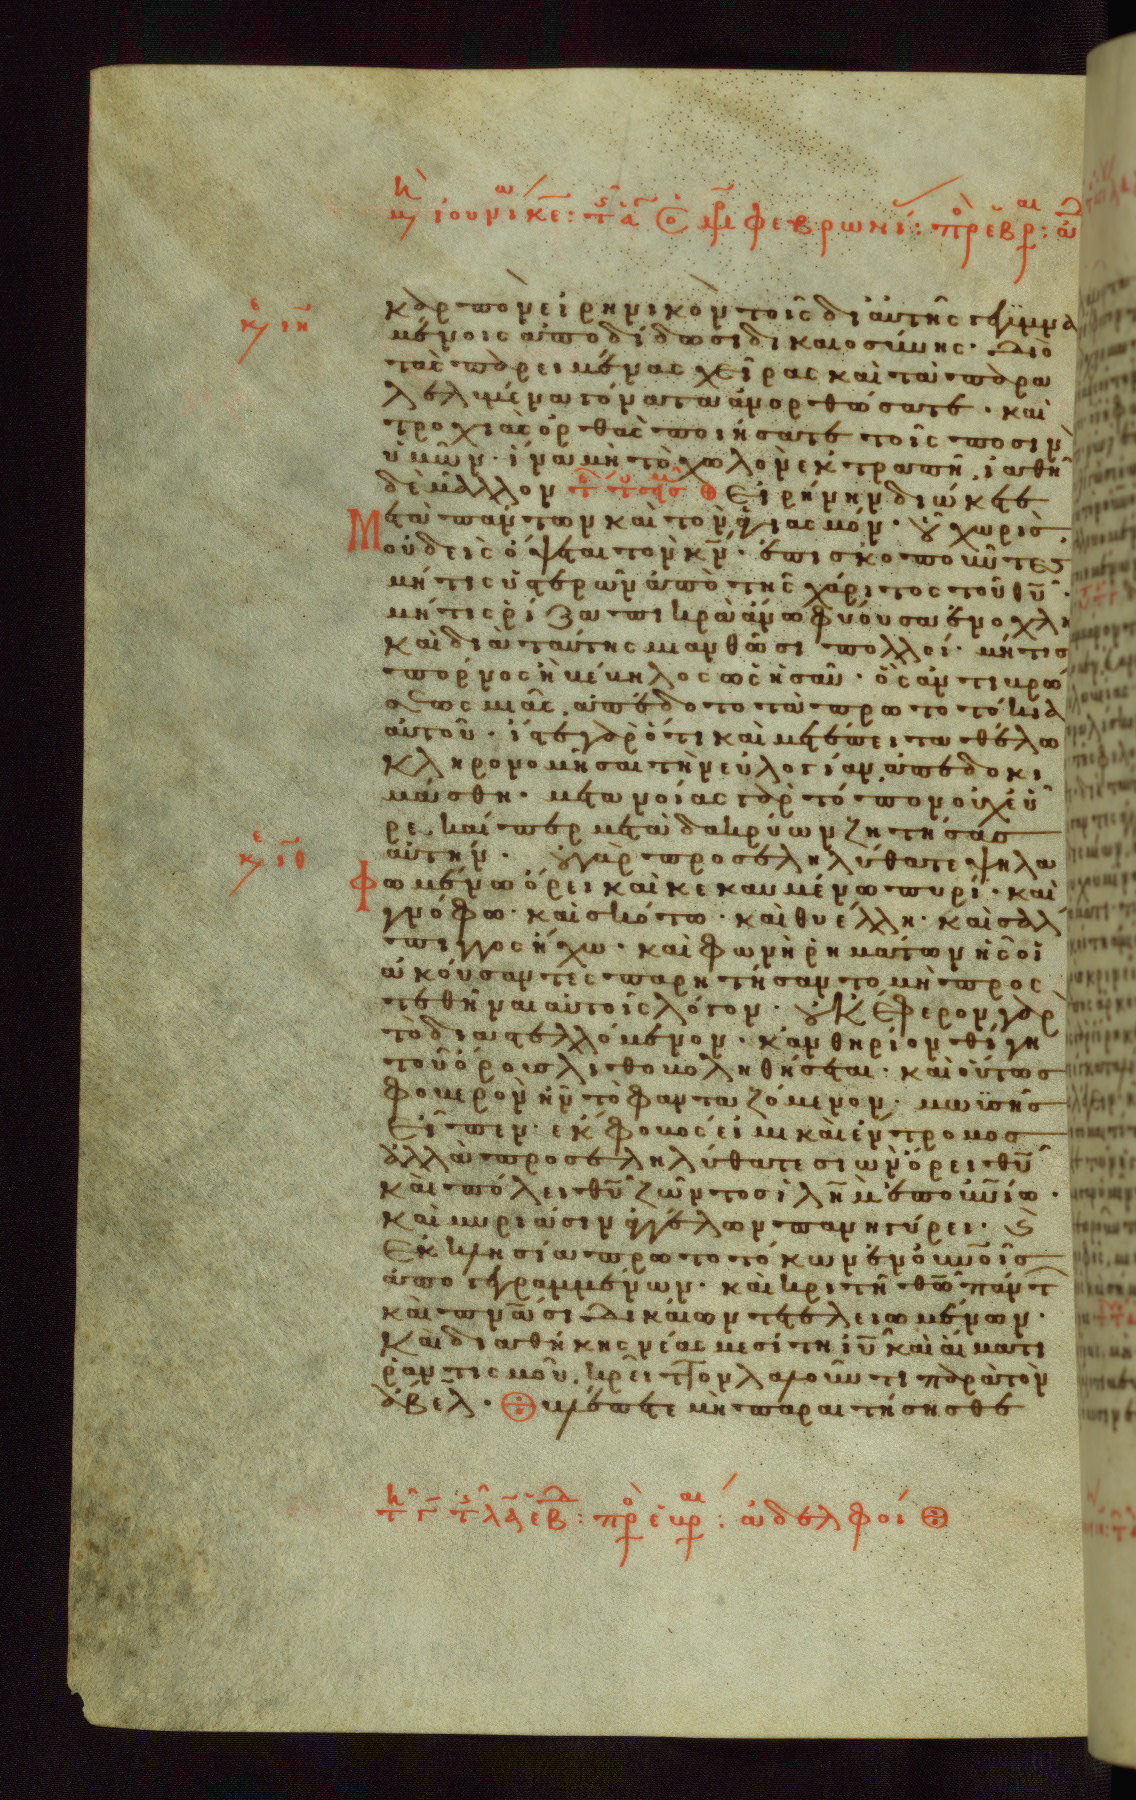 μη ιουνι κε: τη α της μρ φεβρωνι: προς εβρ: α
καρπὸν εἰρηνικὸν τοῖς δι αὐτῆς γεγυμνα
κε ιη
μένοις ἀποδίδωσι δικαιοσύνης· Διὸ
τὰς παρειμένας χεῖρας καὶ τὰ παρα
λελυμένα γόνατα ἀνορθώσατε· καὶ
τροχιὰς ὀρθὰς ποιήσατε τοῖς ποσὶν
ὑμῶν· ἵνα μὴ τὸ χωλὸν ἐκτραπῆ, ἰαθῆ
δὲ μᾶλλον Εἰρήνην διώκετε
μετὰ πάντων καὶ τὸν ἁγιασμόν· οὗ χωρὶς
οὐδεὶς ὄψεται τὸν κν· ἐπισκοποῦντες
μή τις ὑστερῶν ἀπὸ τῆς χάριτος τοῦ θυ·
μή τις ῥίζα πικρὰ ἄνω φύουσα ἐνοχλῆ
καὶ διὰ ταύτης μιανθῶσι πολλοί· μή τις
πόρνος ἢ βέβηλος ὡς ἡσαῦ· ὃς ἀντὶ βρώ
σεως μιᾶς ἀπέδοτο τὰ πρωτοτόκια
αὐτοῦ· ἴστε γὰρ ὅτι καὶ μετέπειτα θέλω
κληρονομῆσαι τὴν εὐλογίαν ἀπεδοκι
μάσθη· μετανοίας γὰρ τόπον οὐχ εὗ
ρε, καίπερ μετὰ δακρύων ζητήσας
κε ιθ
αὐτήν· οὐ γὰρ προσεληλύθατε ψηλα
φωμένω ὄρει καὶ κεκαυμένω πυρί· καὶ
γνόφω· καὶ σκότω· καὶ θυέλλη· καὶ σάλ
πιγγος ἤχω· καὶ φωνῆ ῥημάτων ἧς οἱ
ἀκούσαντες παρητήσαντο μὴ προς
τεθῆναι αὐτοῖς λόγον· οὐκ ἔφερον γὰρ
τὸ διαστελλόμενον· κἂν θηρίον θίγη
τοῦ ὄρους λιθοβοληθήσεται· καὶ οὕτως
φοβερὸν ἦν τὸ φανταζόμενον· μωϋσῆς
εἶπεν· ἔκφοβός εἰμι καὶ ἔντρομος
ἀλλὰ προσεληλύθατε σιὼν ὄρει θυ
καὶ πόλει θυ ζῶντος ἰλημ ἐπουνίω·
καὶ μυριάσιν ἀγγέλων πανηγύρει· καὶ
ἐκκλησία πρωτοτόκων ἐν οὐνοῖς
ἀπογεγραμμένων· καὶ κριτῆ θω πάντ
καὶ πνασι δικαίων τετελειωμένων·
καὶ διαθήκης νέας μεσίτη ιυ καὶ αἵματι
ῥαντισμοῦ, κρεῖττον λαλοῦντι παρὰ τὸν
ἄβελ· βλέπετε μὴ παραιτήσησθε
κυ τη λα εβδ: προς εβρ: ἀδελφοί